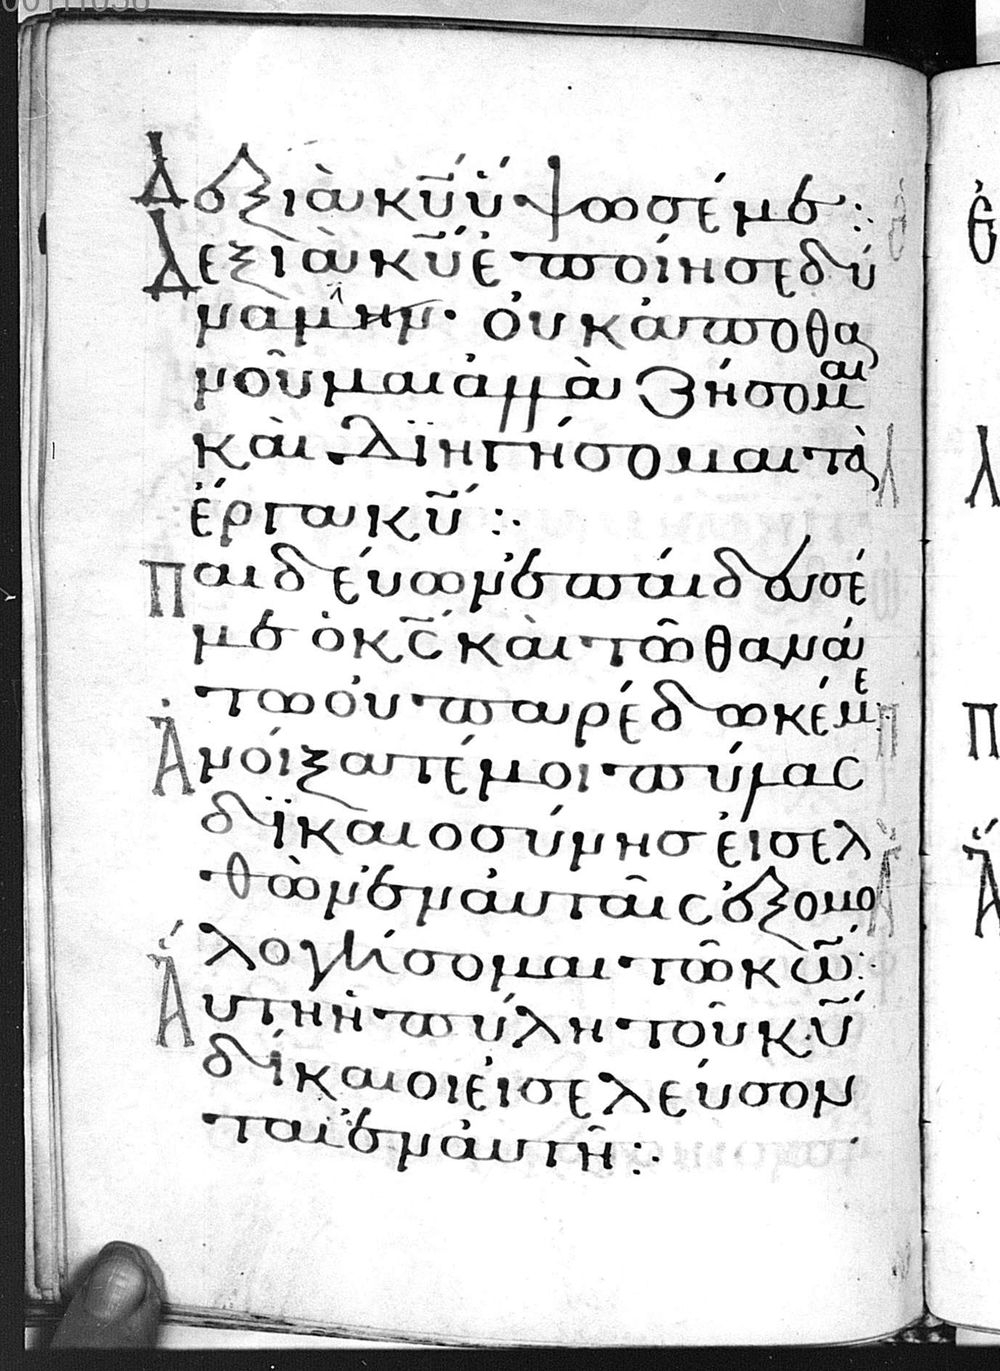 Δεξιὰ κ̅υ̅ ὕψωσέ με:
Δεξιὰ κ̅υ̅ ἐποίησε δύ
ναμιν· οὐκ ἀποθα
νοῦμαι ἀλλὰ ζήσομαι
καὶ διηγήσομαι τὰ
ἔργα κ̅υ̅:·
Παιδεύων ἐπαίδευσέ
με ὁ κ̅ς̅ καὶ τῶ θανά
τω οὐ παρέδωκέ με
Ἀνοίξατέ μοι πύλας
δικαιοσύνης εἰσελ
θὼν ἐν αὐταῖς ἐξομο
λογήσομαι τῶ κ̅ω̅:·
Αὕτη ἡ πύλη τοῦ κ̅υ̅
δίκαιοι εἰσελεύσον
ται ἐν αὐτῆ:·